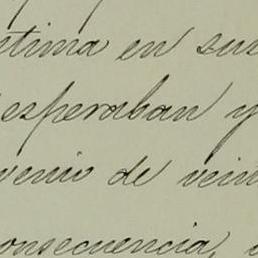 stima en sus
esperaban y
venio de vein
onsecuencia,